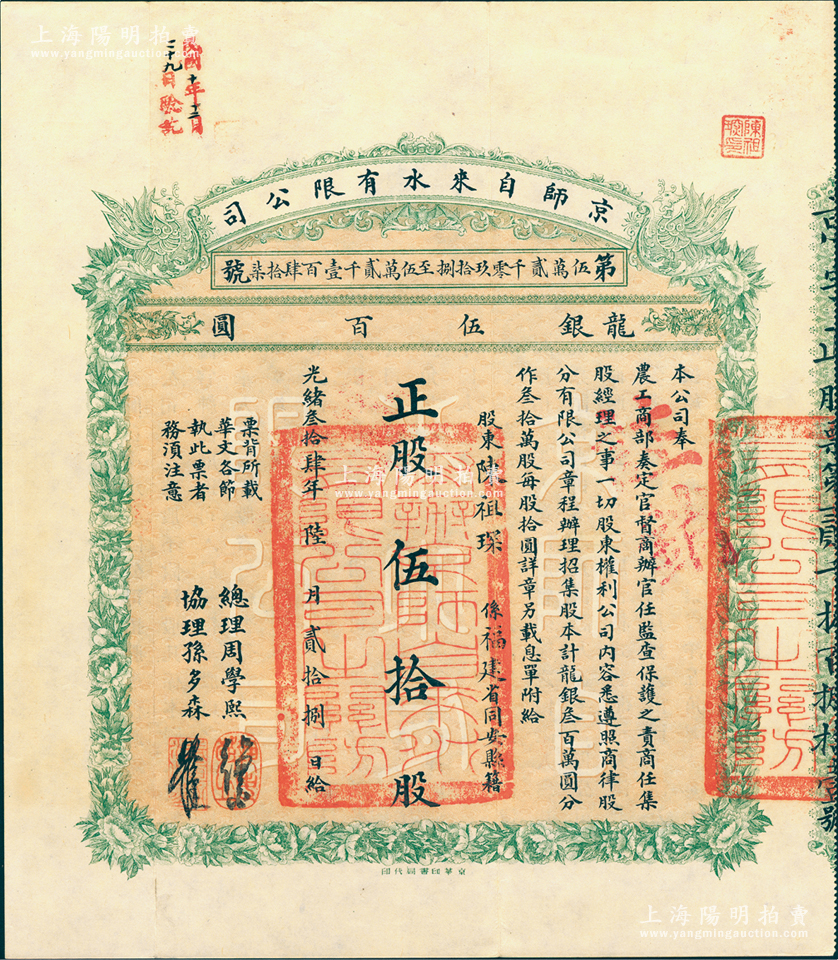 上海陽明拍賣
www.yangmingauction.com
民國十年十二月
二十九日驗訖
京師自來水有限公司
第伍萬貳千零玖拾捌至伍萬貳千壹百肆拾柒號
龍銀伍百圓
本公司奉
農工商部奏定官督商辦官任監查保護之責商任集
股經理之事一切股東權利公司內容悉遵照商律股
分有限公司章程辦理招集股本計龍銀叁百萬圓分
作叁拾萬股每股拾圓詳章另載息單附給
股東陳祖琛 係福建省同安縣籍
正股伍拾股
光緒叁拾肆年陸月貳拾捌日給
票背所載
華文各節
執此票者
務須注意
總理周學熙
協理孫多森
京華印書局代印
上海陽明拍賣
www.yangmingauction.com
上海陽明拍賣
www.yangmingauction.com